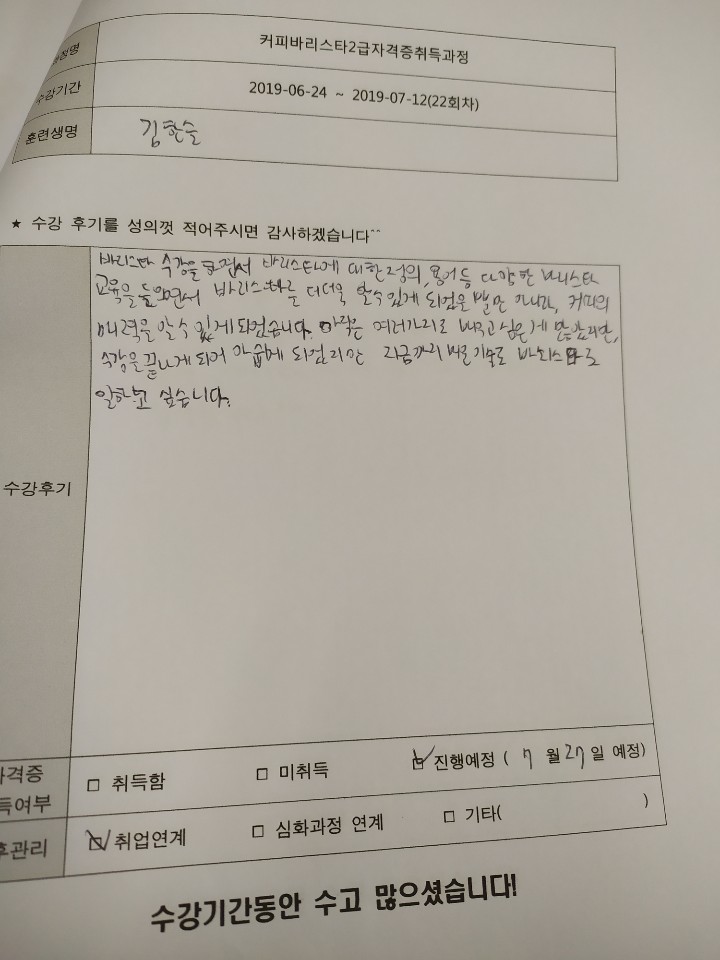 과정명 커피바리스타2급자격증취득과정
수강기간 2019-06-24 ~ 2019-07-12(22회차)
훈련생명 김한슬
★ 수강 후기를 성의껏 적어주시면 감사하겠습니다^^
바리스타 수강을 하면서 바리스타에 대한 정의, 용어등 다양한 바리스타
교육을 들으면서 바리스타를 더더욱 알수 있게 되었을 뿐만 아니라, 커피의
매력을 알 수 있게 되었습니다. 아직은 여러가지로 배우고 싶은게 많았지만,
수강을 끝나게 되어 아쉽게 되었지만 지금까지 배운 기술로 바리스타로
일하고 싶습니다.
수강후기
자격증
득여부
□ 취득함 □ 미취득 ☑ 진행예정 ( 7 월 27 일 예정)
후관리 ☑ 취업연계 □ 심화과정 연계 □ 기타( )
수강기간동안 수고 많으셨습니다!